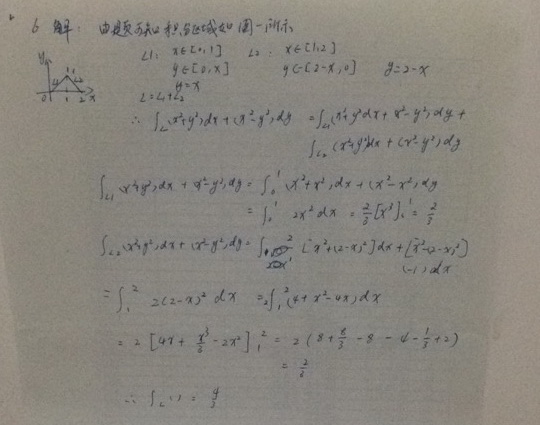 6 解: 由题可知积分区域如图一所示
L1: x∈[0,1] L2: x∈[1,2]
y∈[0,x] y∈[2-x,0] y=2-x
y=x
L=L1+L2
y 1 L1 L2 0 1 2 x
∴ ∫L(x²+y²)dx+(x²-y²)dy = ∫L1(x²+y²)dx+(x²-y²)dy+
∫L2(x²+y²)dx+(x²-y²)dy
∫L1(x²+y²)dx+(x²-y²)dy = ∫₀¹(x²+x²)dx+(x²-x²)dy
= ∫₀¹ 2x²dx = 2/3[x³]₀¹ = 2/3
∫L2(x²+y²)dx+(x²-y²)dy = ∫₁² [x²+(2-x)²]dx+[x²-(2-x)²]
(-1)dx
= ∫₁² 2(2-x)²dx = 2∫₁²(4+x²-4x)dx
= 2[4x+x³/3-2x²]₁² = 2(8+8/3-8-4-1/3+2)
= 2/3
∴ ∫L() = 4/3